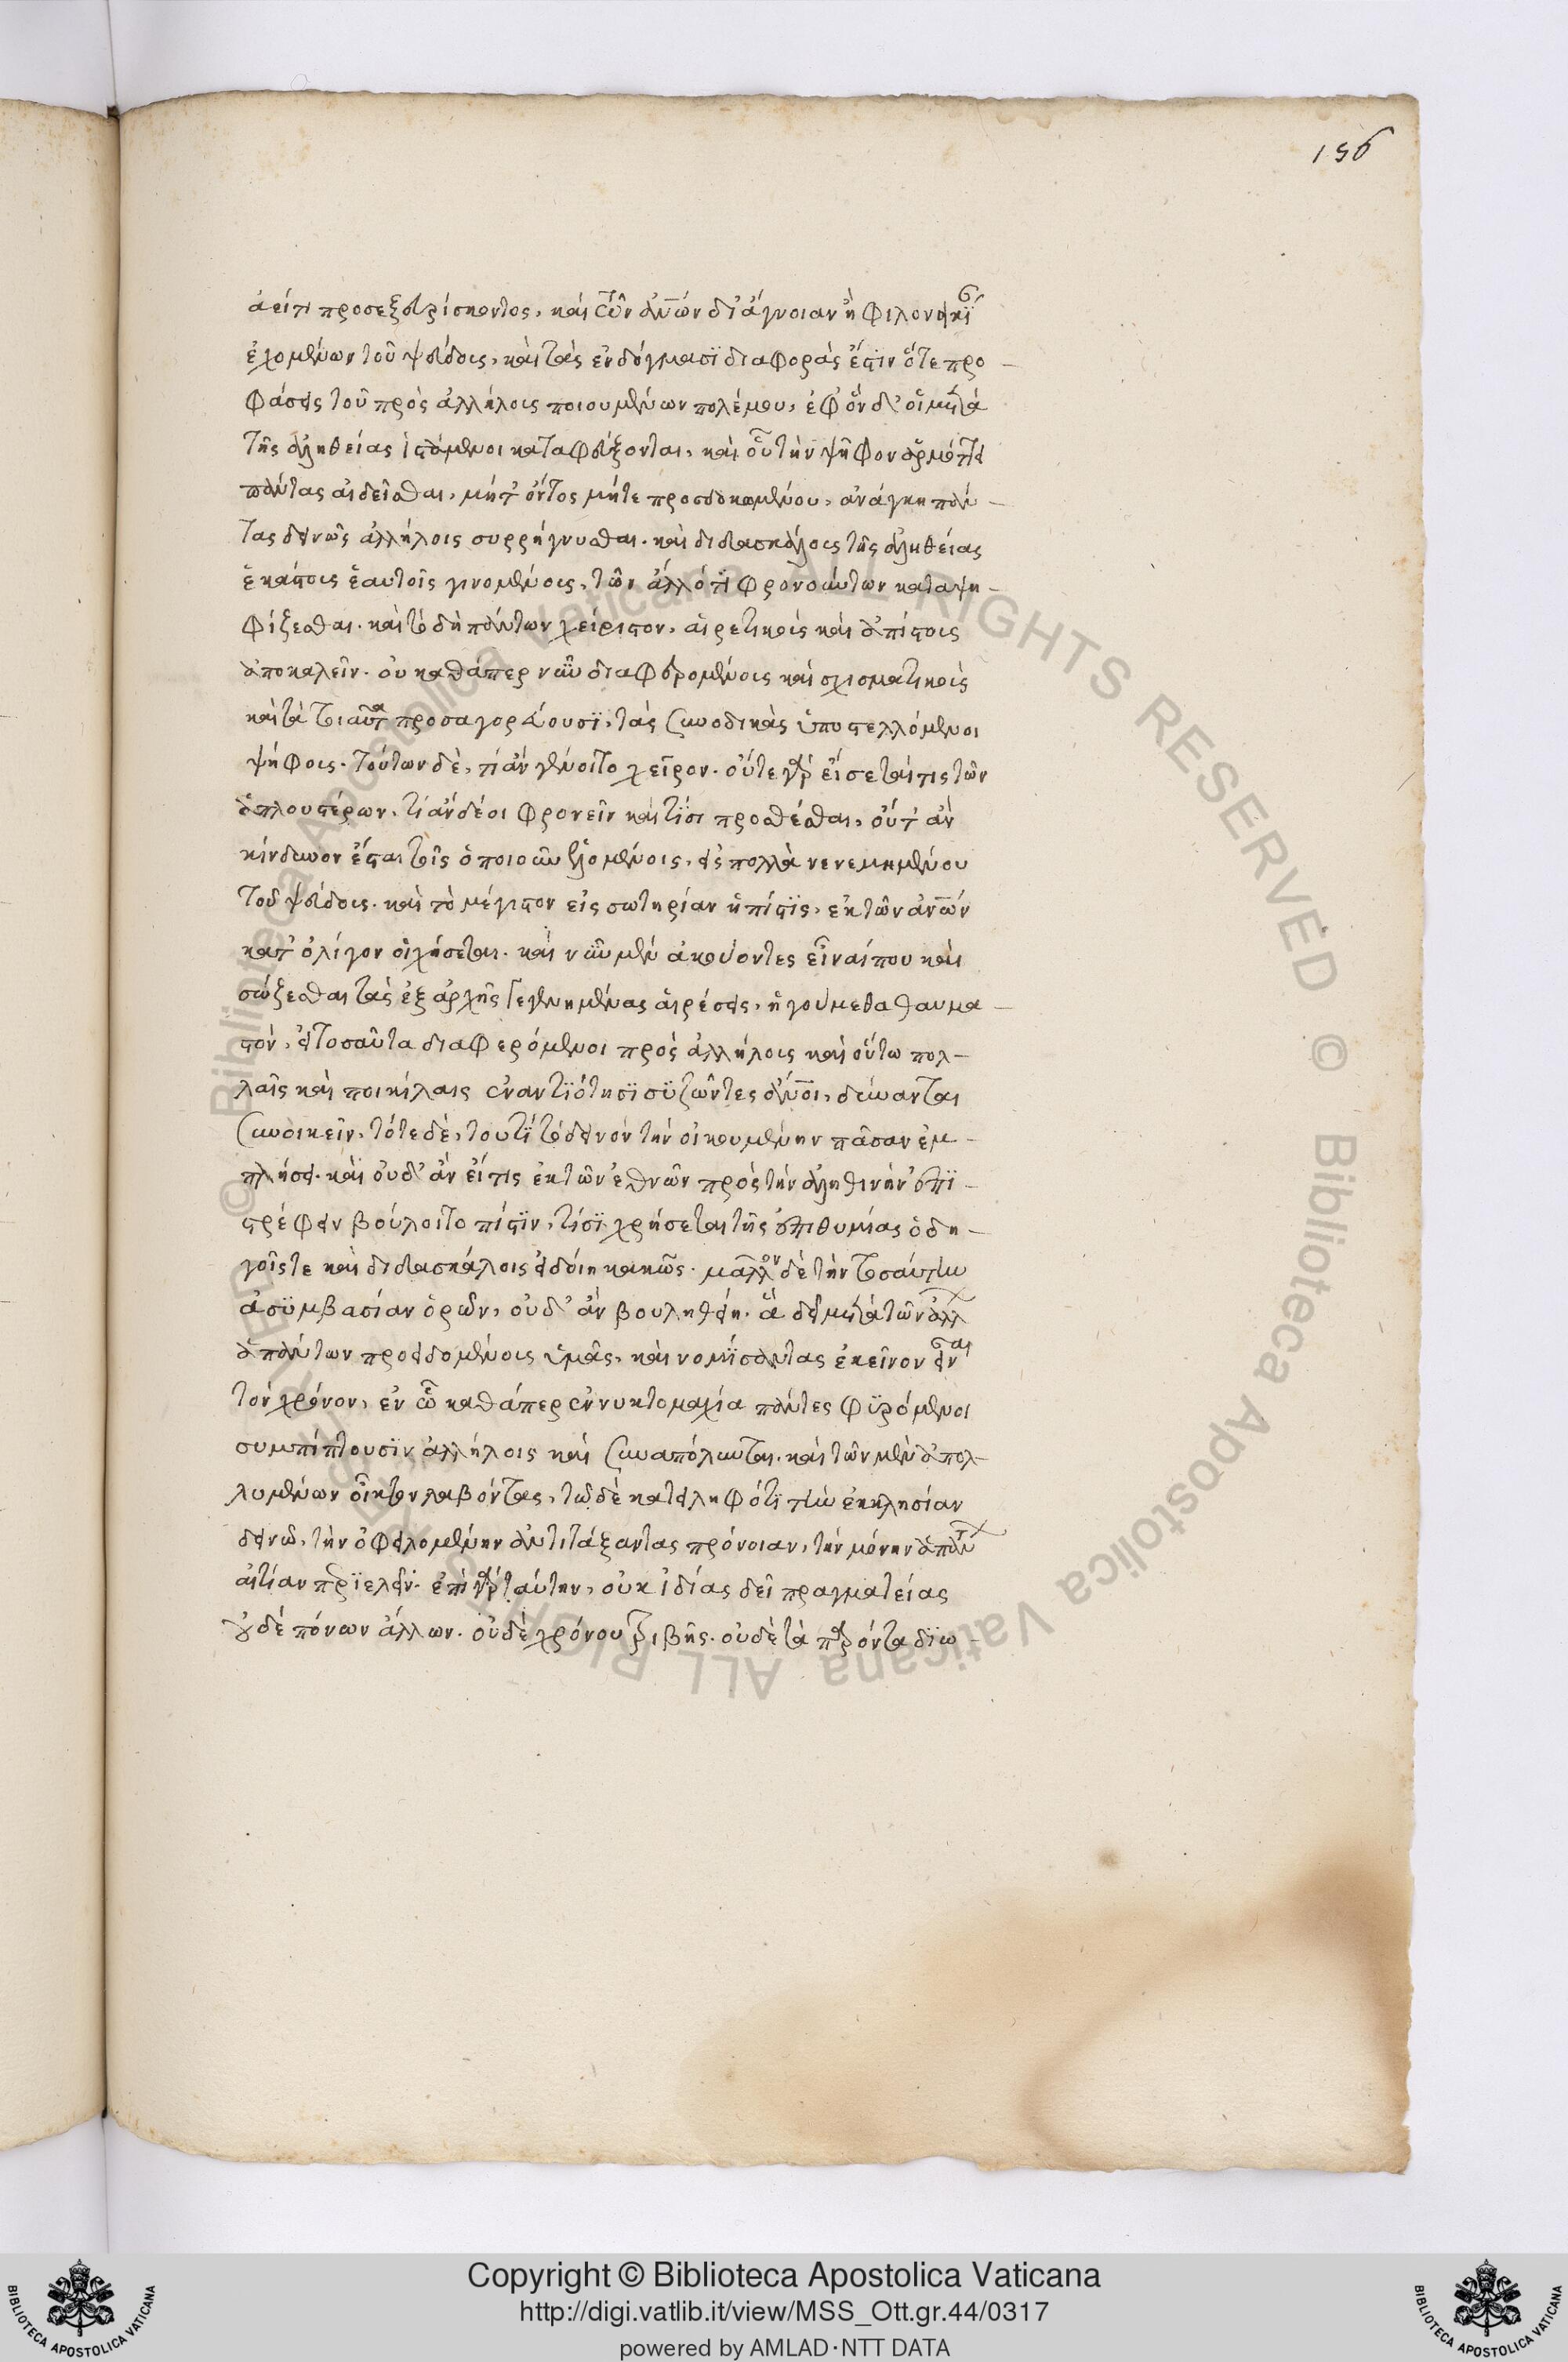 156
ἀεί τι προσεξευρίσκοντος, καὶ τῶν ἀνων δι' ἄγνοιαν ἢ φιλονεικίας
ἐχομένων τοῦ ψεύδους, καὶ τὰς ἐν δόγμασι διαφορὰς ἔστιν ὅτε προ-
φάσεις τοῦ πρὸς ἀλλήλους ποιουμένων πολέμου, ἐφ' ὃν δ' οἱ μετὰ
τῆς ἀληθείας ἱστάμενοι καταφεύξονται, καὶ οὗ τὴν ψῆφον ἁρμόττει
πάντας αἰδεῖσθαι, μήτ' ὄντος μήτε προσδοκωμένου, ἀνάγκη πάν-
τας δεινῶς ἀλλήλοις συρρήγνυσθαι. καὶ διδασκάλους τῆς ἀληθείας
ἑκάστους ἑαυτοῖς γινομένους, τῶν ἄλλό τι φρονούντων καταψη-
φίζεσθαι. καὶ τὸ δὴ πάντων χείριστον, αἱρετικοὺς καὶ ἀπίστους
ἀποκαλεῖν. οὐ καθάπερ νῦν διαφθειρομένους καὶ σχισματικοὺς
καὶ τὰ τοιαῦτα προσαγορεύουσι, τὰς συνοδικὰς ὑποστελλόμενοι
ψήφους. τούτων δὲ, τί ἂν γένοιτο χεῖρον. οὔτε γὰρ εἴσεταί τις τῶν
ἁπλουστέρων, τί ἂν δέοι φρονεῖν καὶ τίσι προσθέσθαι, οὔτ' ἂν
κίνδυνον ἔσται τοῖς ὁποιοσοῦν ἑλομένοις, εἰς πολλὰ νενεμημένου
τοῦ ψεύδους. καὶ τὸ μέγιστον εἰς σωτηρίαν ἡ πίστις, ἐκ τῶν ἀνων
κατ' ὀλίγον οἰχήσεται. καὶ νῦν μὲν ἀκούοντες εἶναί που καὶ
σώζεσθαι τὰς ἐξ ἀρχῆς γεγενημένας αἱρέσεις, ἡγούμεθα θαυμα-
στὸν, εἰ τοσαῦτα διαφερόμενοι πρὸς ἀλλήλους καὶ οὕτω πολ-
λαῖς καὶ ποικίλαις ἐναντιότησι συζῶντες ἀνοι, δύνανται
συνοικεῖν, τότε δὲ, τουτὶ τὸ δεινὸν τὴν οἰκουμένην πᾶσαν ἐμ-
πλήσει. καὶ οὐδ' ἂν εἴ τις ἐκ τῶν ἐθνῶν πρὸς τὴν ἀληθινὴν ἐπι-
στρέφειν βούλοιτο πίστιν, τίσι χρήσεται τῆς ἐπιθυμίας ὁδη-
γοῖς τε καὶ διδασκάλοις εἰδοίη κακῶς. μᾶλλον δὲ τὴν τοσαύτην
ἀσυμβασίαν ὁρῶν, οὐδ' ἂν βουληθείη. ἃ δεῖ μετὰ τῶν ἄλλ
ἁπάντων προειδομένους ὑμᾶς, καὶ νομίσαντας ἐκεῖνον εἶναι
τὸν χρόνον, ἐν ᾧ καθάπερ ἐν νυκτομαχία πάντες φυρόμενοι
συμπίπτουσιν ἀλλήλοις καὶ συναπόλλυνται. καὶ τῶν μὲν ἀπολ-
λυμένων οἶκτον λαβόντας, τῷ δὲ κατειληφότι τὴν ἐκκλησίαν
δεινῷ, τὴν ὀφειλομένην ἀντιτάξαντας πρόνοιαν, τὴν μόνην ἁπάντ
αἰτίαν περιελεῖν. ἐπὶ γὰρ ταύτην, οὐκ ἰδίας δεῖ πραγματείας
οὐδὲ πόνων ἄλλων. οὐδὲ χρόνου τριβῆς. οὐδὲ τὰ παρόντα διω-
© Biblioteca Apostolica Vaticana ALL RIGHTS RESERVED © Biblioteca Apostolica Vaticana ALL RIGHTS RESERVED
Copyright © Biblioteca Apostolica Vaticana
http://digi.vatlib.it/view/MSS_Ott.gr.44/0317
powered by AMLAD·NTT DATA
BIBLIOTECA APOSTOLICA VATICANA
BIBLIOTECA APOSTOLICA VATICANA